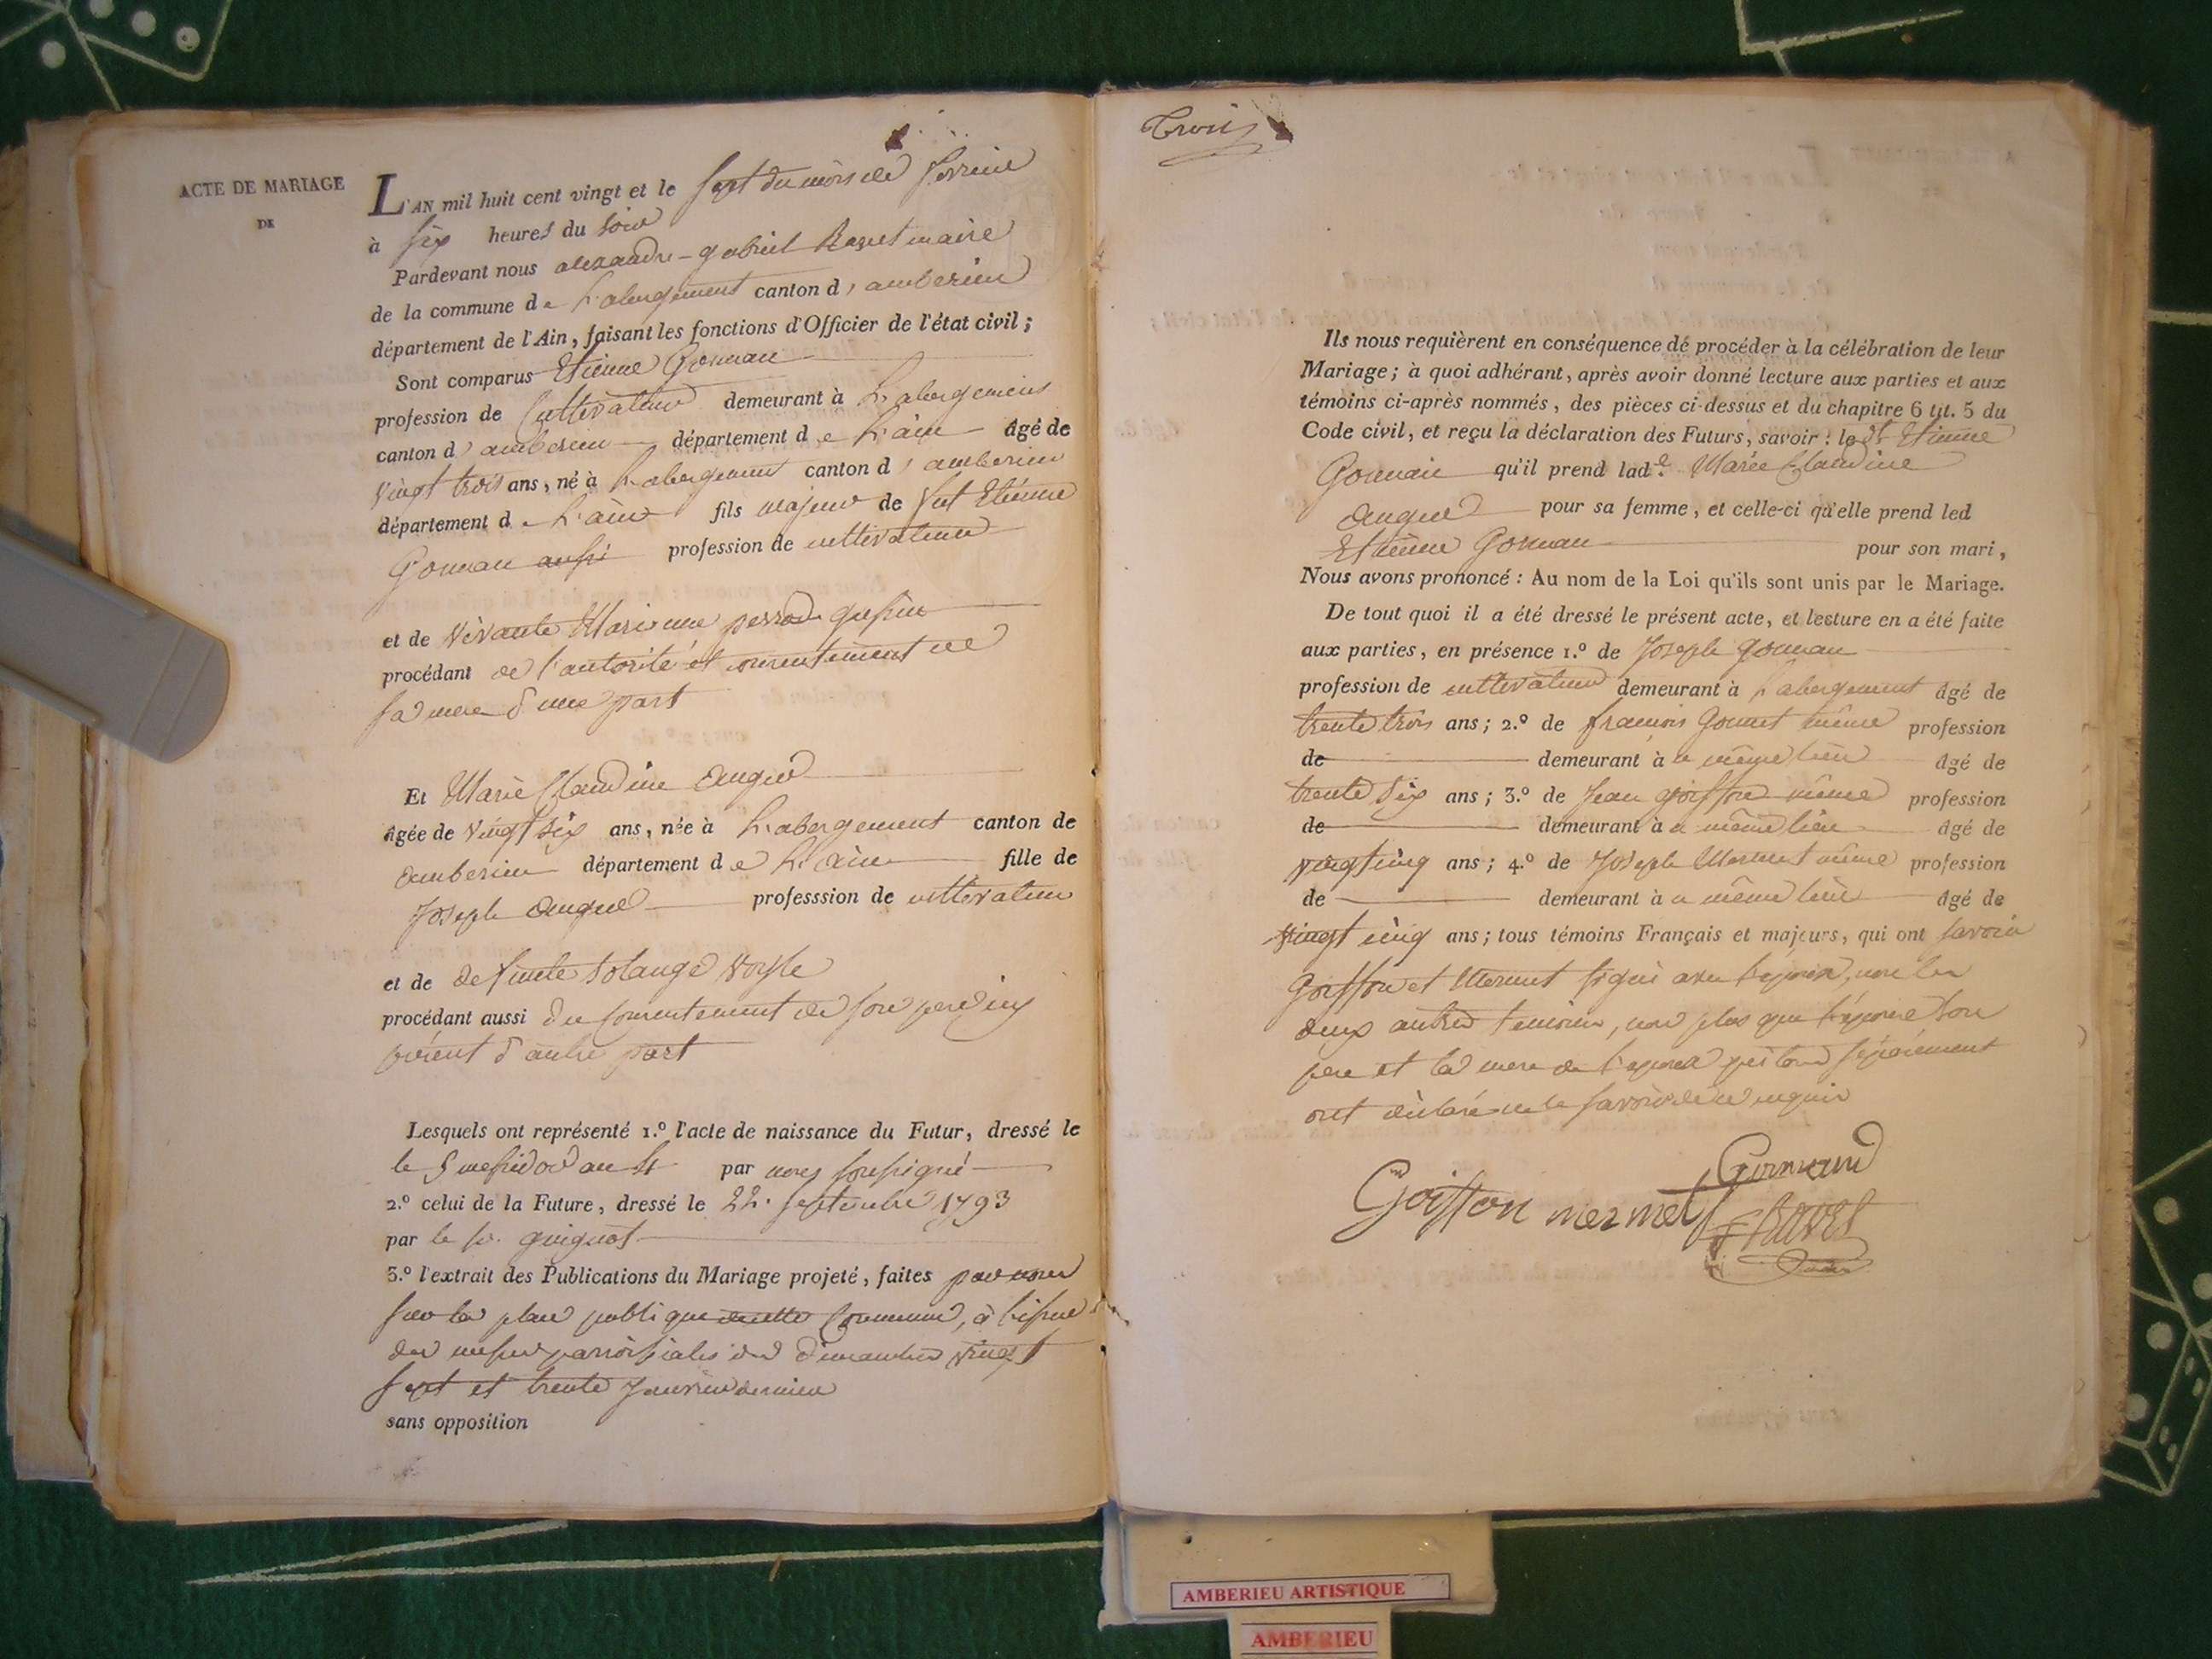 ACTE DE MARIAGE
DE
L'AN mil huit cent vingt et le sept du mois de fevrier
à six heures du soir
Pardevant nous alexandre-gabriel Ravet maire
de la commune de L'abergement canton d'amberieu
département de l'Ain, faisant les fonctions d'Officier de l'état civil;
Sont comparus Etienne Gonnau
profession de Cultivateur demeurant à L'abergement
canton d'amberieu département de L'ain âgé de
vingt trois ans, né à L'abergement canton d'amberieu
département de L'ain fils majeur de fut Etienne
Gonnau aussi profession de cultivateur
et de vivante Marianne perrod
procédant de l'autorité et consentement de
sa mere d'une part
Et Marie Claudine
âgée de vingt six ans, née à L'abergement canton de
amberieu département de L'ain fille de
Joseph professsion de cultivateur
et de defunte Solange
procédant aussi du consentement de son pere ici
présent d'autre part
Lesquels ont représenté 1.º l'acte de naissance du Futur, dressé le
le 5 messidor an 4 par nous soussigné
2.º celui de la Future, dressé le 22. septembre 1793
par le sr. guignot
3.º l'extrait des Publications du Mariage projeté, faites par nous
sur la place publique de cette Commune, à l'issue
des messes parroissiales des dimanches vingt
sept et trente Janvier dernier
sans opposition
Trois
Ils nous requièrent en conséquence dé procéder à la célébration de leur
Mariage; à quoi adhérant, après avoir donné lecture aux parties et aux
témoins ci-après nommés, des pièces ci-dessus et du chapitre 6 tit. 5 du
Code civil, et reçu la déclaration des Futurs, savoir: le dt Etienne
Gonnau qu'il prend lad.e Marie Claudine
pour sa femme, et celle-ci qu'elle prend led
Etienne Gonnau pour son mari,
Nous avons prononcé: Au nom de la Loi qu'ils sont unis par le Mariage.
De tout quoi il a été dressé le présent acte, et lecture en a été faite
aux parties, en présence 1.º de Joseph Gonnau
profession de cultivateur demeurant à L'abergement âgé de
trente trois ans; 2.º de francois même profession
de demeurant à u même lieu âgé de
trente six ans; 3.º de Jean goiffon même profession
de demeurant à u même lieu âgé de
vingt cinq ans; 4.º de Joseph Mermet même profession
de demeurant à u même lieu âgé de
vingt cinq ans; tous témoins Français et majeurs, qui ont savoir
Goiffon et Mermet signé avec l'epoux, non les
deux autres temoins, non plus que l'epouse son
pere et la mere de l'epoux qui tous séparément
ont déclaré ne le savoir de ce enquis
Goiffon mermet
Ravet
AMBERIEU ARTISTIQUE
AMBERIEU